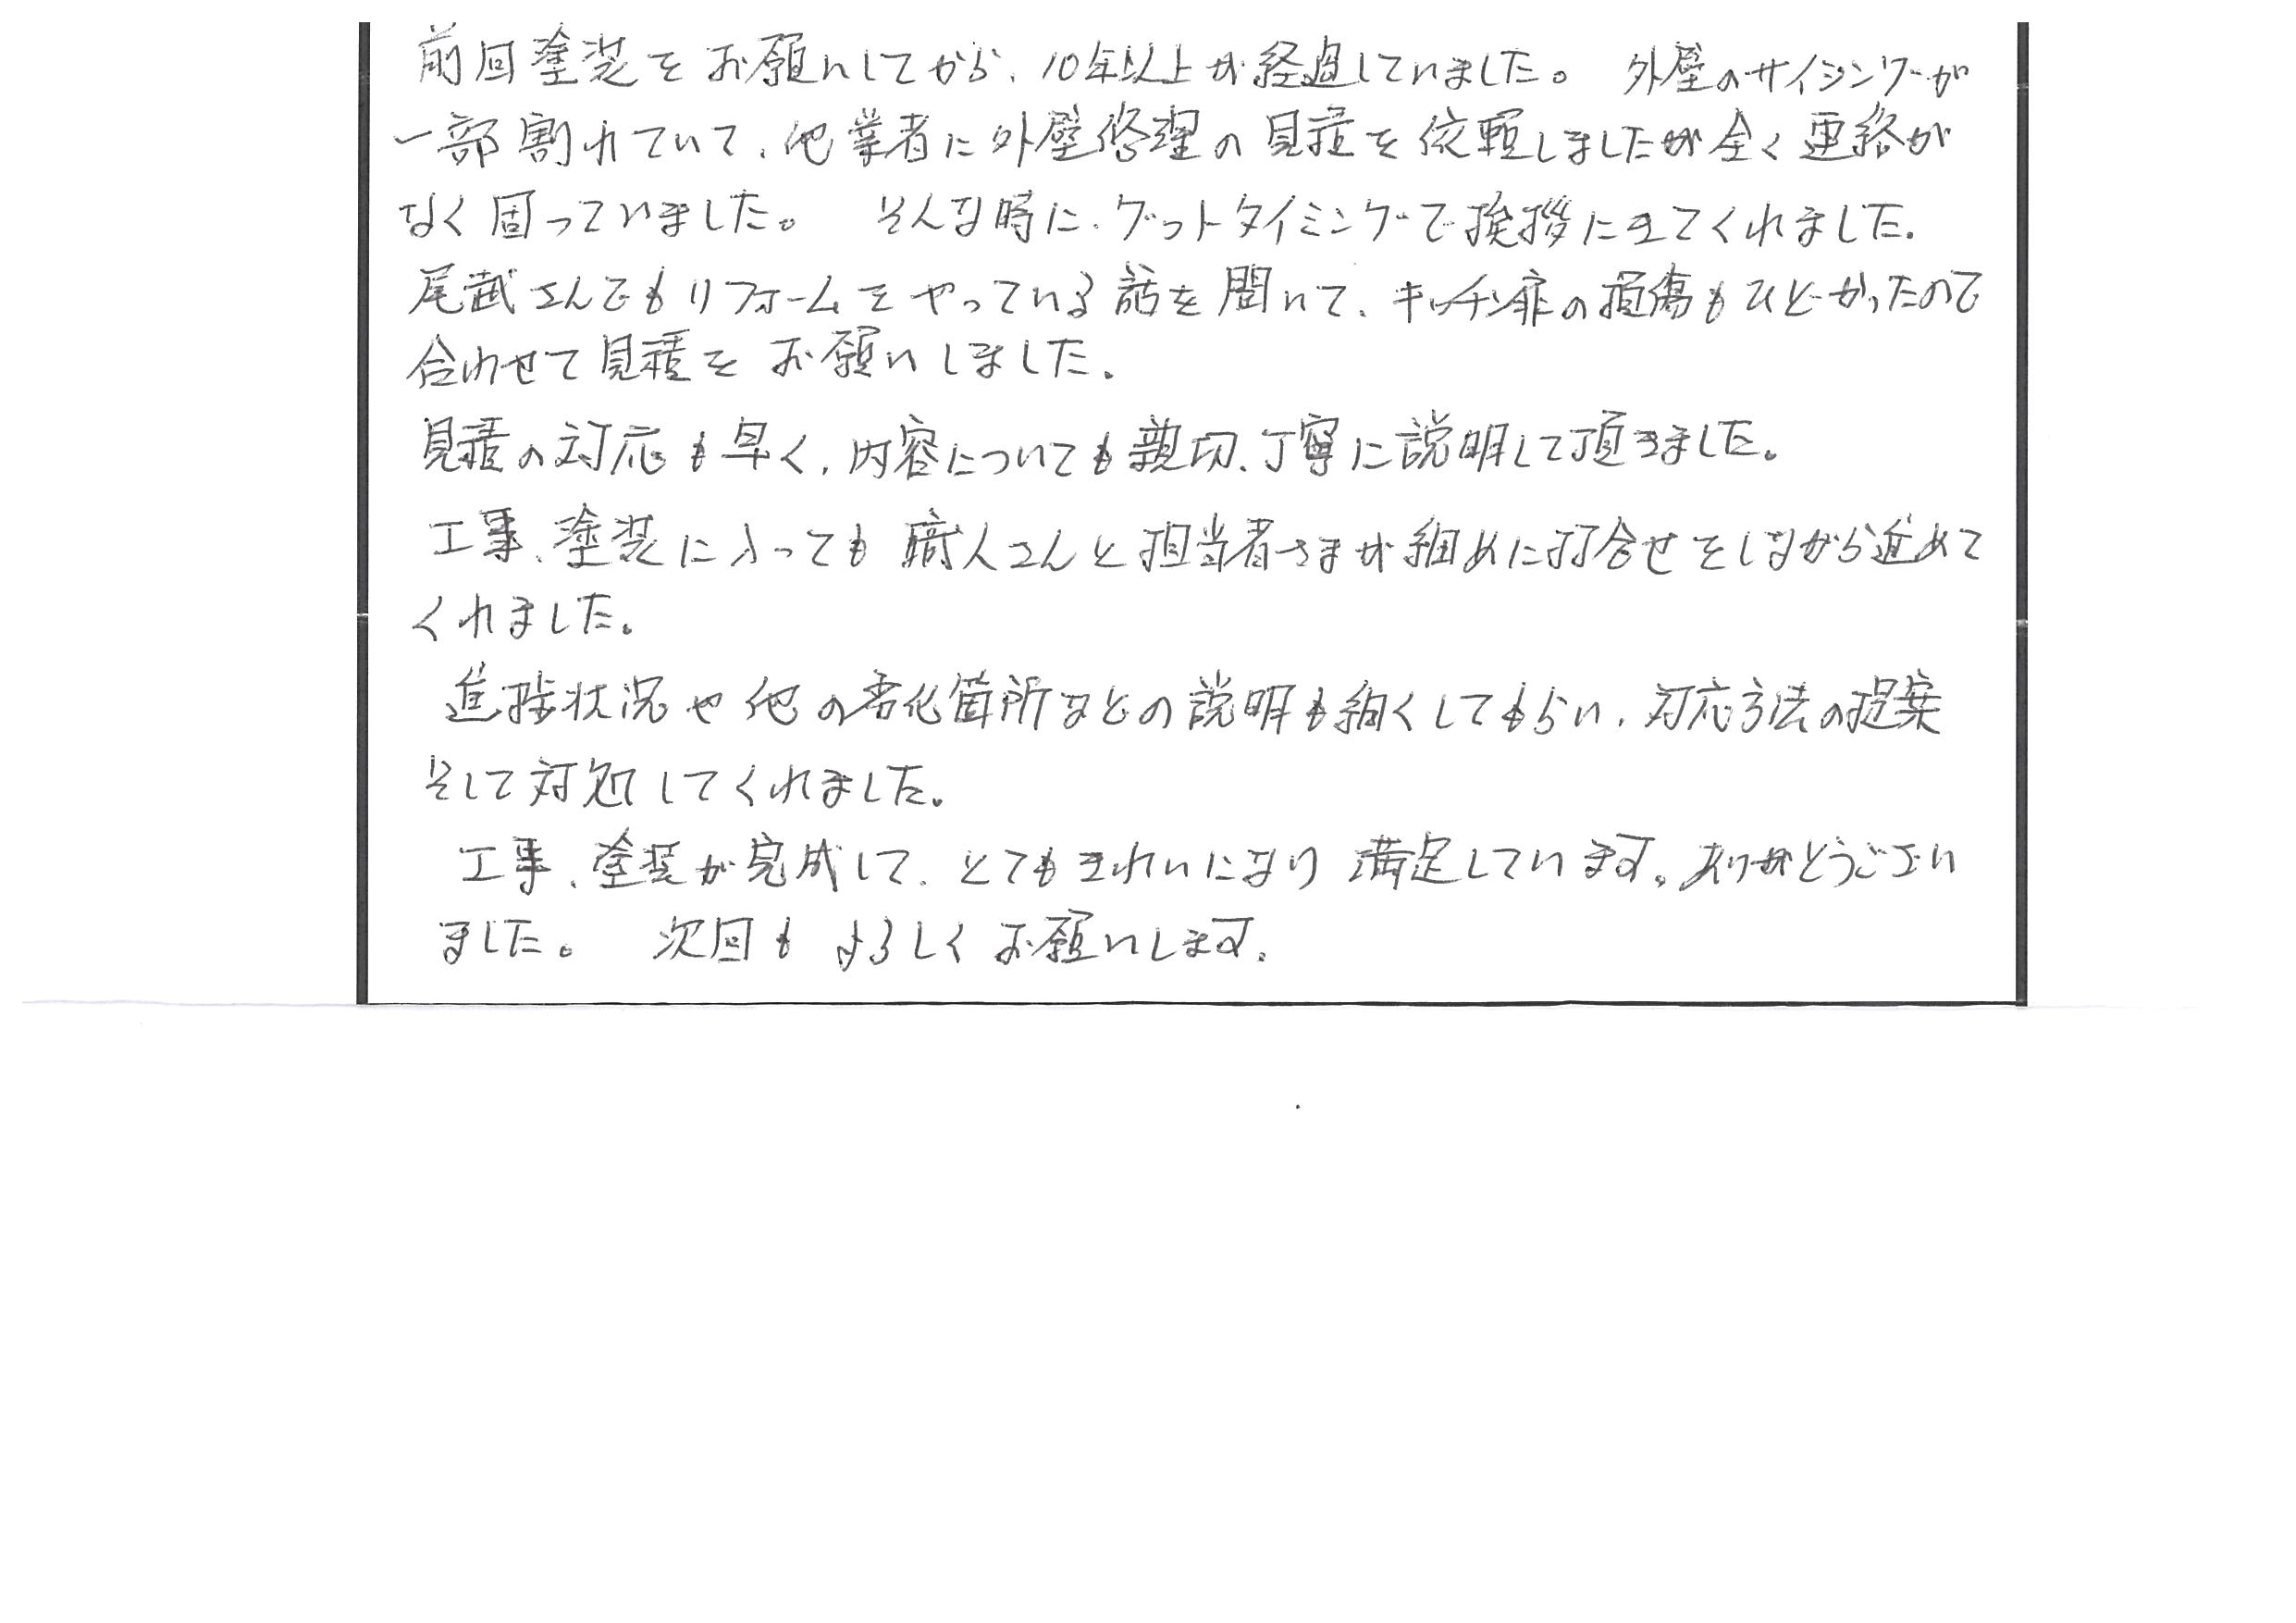 前回塗装をお願いしてから、10年以上が経過していました。 外壁のサイジングが
一部割れていて、他業者に外壁修理の見積を依頼しましたが全く連絡が
なく困っていました。 そんな時に、グットタイミングで挨拶にきてくれました。
尾越さんでもリフォームをやっている話を聞いて、キッチン扉の損傷もひどかったので
合わせて見積をお願いしました。
見積の対応も早く、内容についても親切、丁寧に説明して頂きました。
工事、塗装に入っても職人さんと担当者さまが細めに打合せをしながら進めて
くれました。
進捗状況や他の劣化箇所などの説明も細くしてもらい、対応方法の提案
そして対処してくれました。
工事、塗装が完成して、とてもきれいになり満足しています。ありがとうござい
ました。 次回もよろしくお願いします。